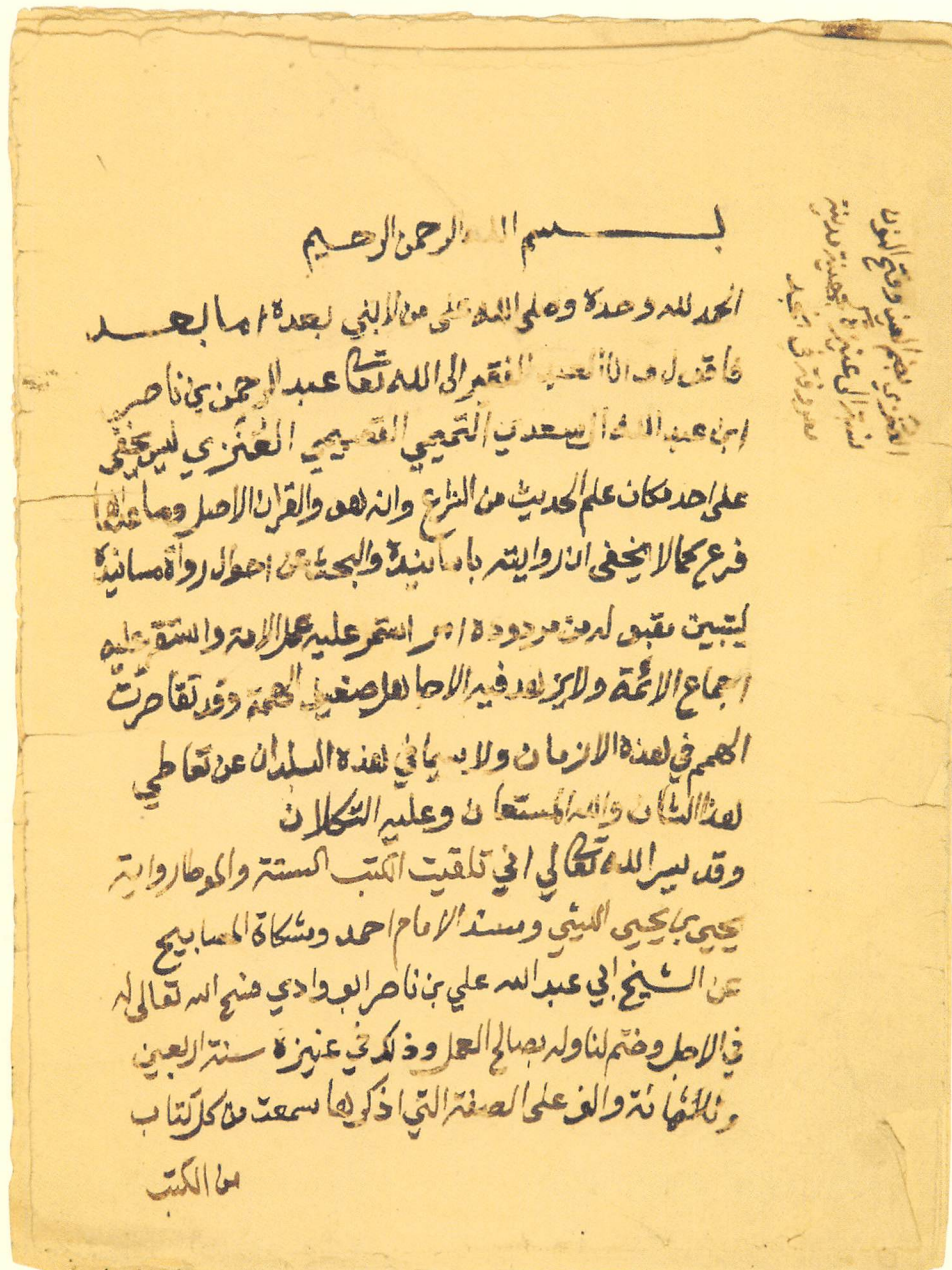 بسم الله الرحمن الرحيم
الحمد لله وحده وصلى الله على من لا نبي بعده اما بعد
فاقول وانا العبد الفقير الى الله تعالى عبد الرحمن بن ناصر
ابن عبد الله آل سعدي التميمي القصيمي العُنَزي ليس يخفى
على احد مكان علم الحديث من الشرع وانه هو والقران الاصل وما عداهما
فرع كما لا يخفى ان روايته باسانيده والبحث عن احوال رواة مسانيده
ليتبين مقبوله من مردوده امر استمر عليه عمل الامة واستقر عليه
اجماع الائمة ولا يزهد فيه الا جاهل صغير الهمة وقد تقاصرت
الهمم في هذه الازمان ولا سيما في هذه البلدان عن تعاطي
هذا الشان والله المستعان وعليه التكلان
وقد يسر الله تعالى لي اني تلقيت الكتب الستة والموطا رواية
يحيى بن يحيى الليثي ومسند الامام احمد ومشكاة المصابيح
عن الشيخ ابي عبد الله علي بن ناصر ابو وادي فسح الله تعالى له
في الاجل وختم لنا وله بصالح العمل وذلك في عنيزة سنة اربعين
وثلاثمائة والف على الصفة التي اذكرها سمعت من كل كتاب
من الكتب
العُنَزي بضم العين وفتح النون
نسبة الى عنيزة مدينة
معروفة في نجد